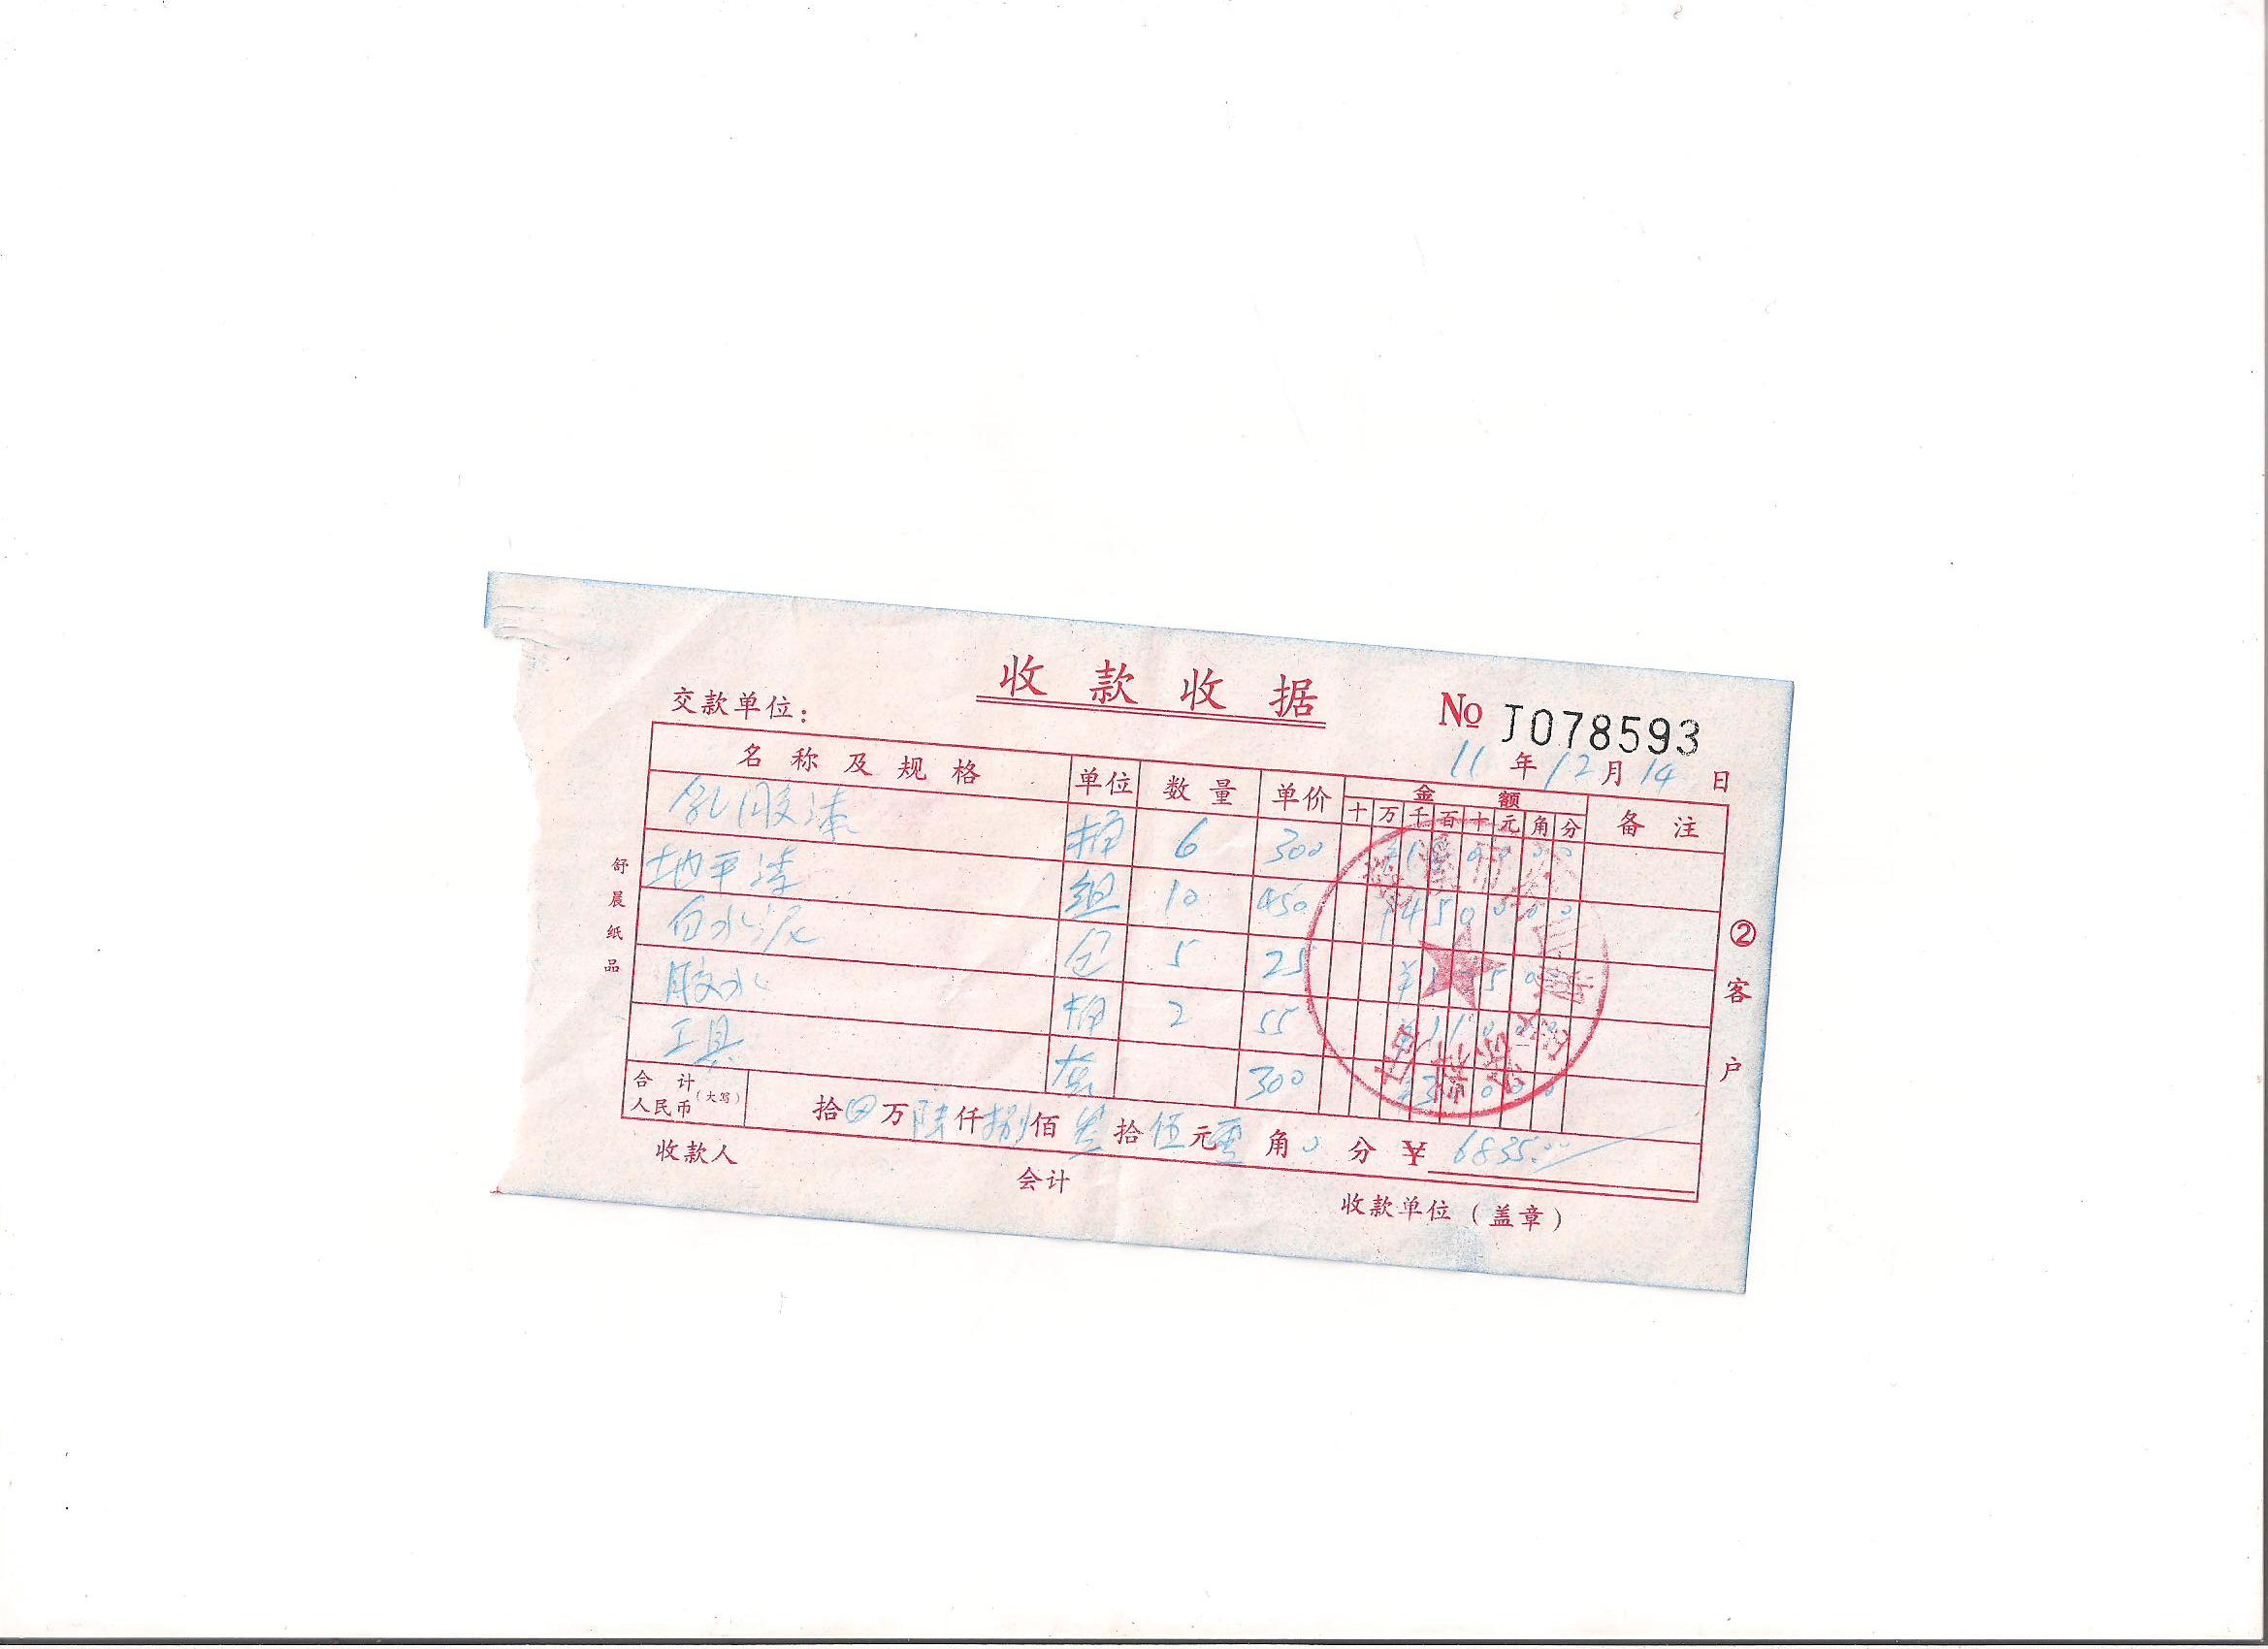 收款收据
交款单位： № J078593
11年12月14日
名称及规格 单位 数量 单价 金额 备注
十万千百十元角分
乳胶漆 桶 6 300 ¥180000
地平漆 组 10 450 ¥450000
白水泥 包 5 25 ¥12500
胶水 桶 2 55 ¥11000
工具 套 300 ¥30000
合计人民币（大写） 拾⊗万陆仟捌佰叁拾伍元零角0分 ¥6835.00
收款人 会计 收款单位（盖章）
舒晨纸品
②客户